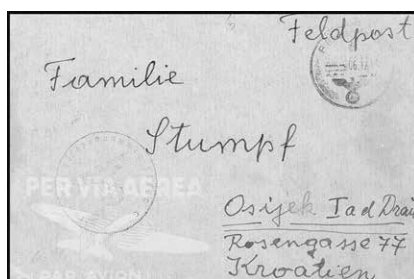 Feldpost
Familie
Stumpf
PER VIA AEREA
Osijek I a d Drau
Rosengasse 77
PAR AVION
Kroatien